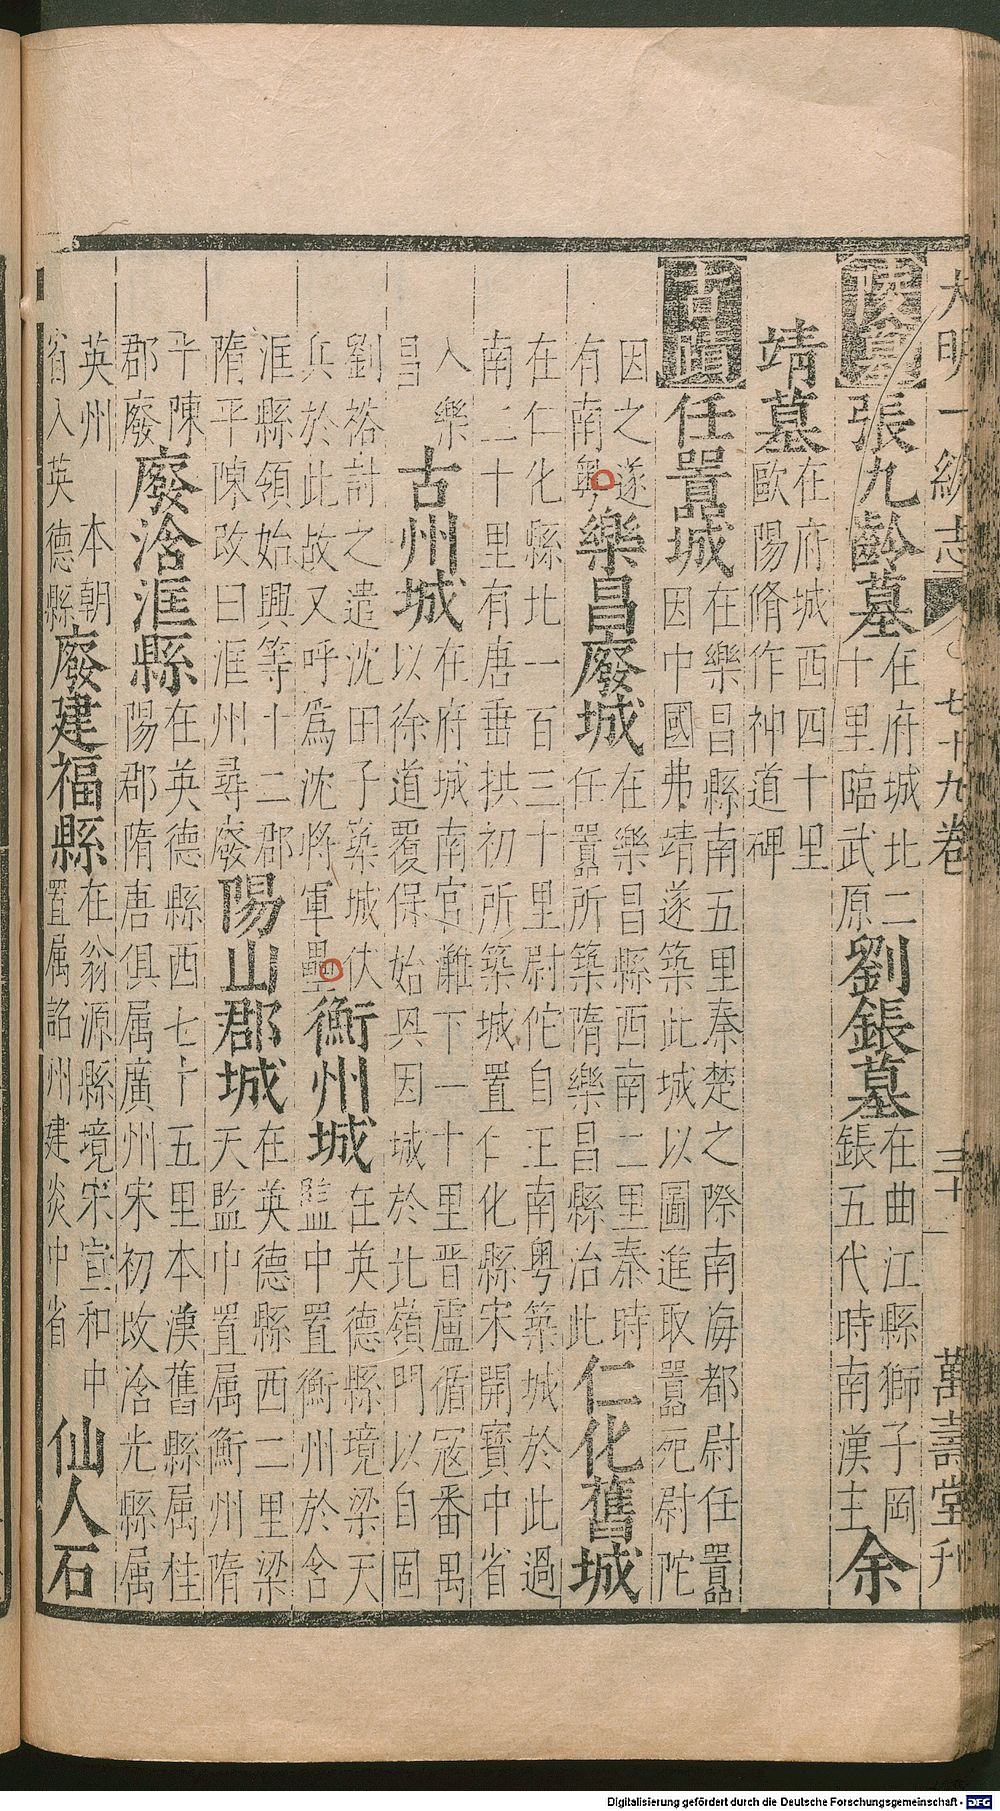 大明一統志 七十九卷 三十一 萬壽堂刊
陵墓 張九齡墓 在府城北二十里臨武原 劉鋹墓 在曲江縣獅子岡鋹五代時南漢主 余
靖墓 在府城西四十里歐陽脩作神道碑
古蹟 任囂城 在樂昌縣南五里秦楚之際南海都尉任囂因中國弗靖遂築此城以圖進取囂死尉陀
因之遂有南粵 樂昌廢城 在樂昌縣西南二里秦時任囂所築隋樂昌縣治此 仁化舊城
在仁化縣北一百三十里尉佗自王南粤築城於此過南二十里有唐垂拱初所築城置仁化縣宋開寶中省
入樂昌 古州城 在府城南官灘下一十里晋盧循寇番禺以徐道覆保始興因城於北嶺門以自固
劉裕討之遣沈田子築城伏兵於此故又呼爲沈將軍壘 衡州城 在英德縣境梁天監中置衡州於含
洭縣領始興等十二郡隋平陳改曰洭州尋廢 陽山郡城 在英德縣西二里梁天監中置属衡州隋
平陳郡廢 廢浛洭縣 在英德縣西七十五里本漢舊縣属桂陽郡隋唐俱属廣州宋初改浛光縣属
英州 本朝省入英德縣 廢建福縣 在翁源縣境宋宣和中置属韶州建炎中省 仙人石
Digitalisierung gefördert durch die Deutsche Forschungsgemeinschaft - DFG